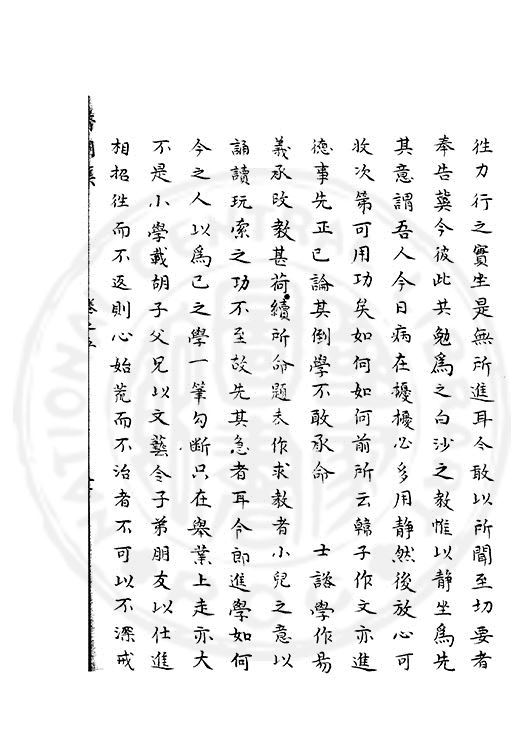 徃力行之實坐是無所進耳今敢以所聞至切要者
奉告冀今彼此共勉為之白沙之教惟以靜坐為先
其意謂吾人今日病在擾擾必多用靜然後放心可
收次第可用功矣如何如何前所云韓子作文亦進
徳事先正已論其倒學不敢承命　士諤學作易
義承改教甚荷續所命題未作求教者小兒之意以
誦讀玩索之功不至故先其急者耳令郎進學如何
今之人以為己之學一筆勾斷只在舉業上走亦大
不是小學載胡子父兄以文藝令子弟朋友以仕進
相招徃而不返則心始荒而不治者不可以不深戒
醫閭集